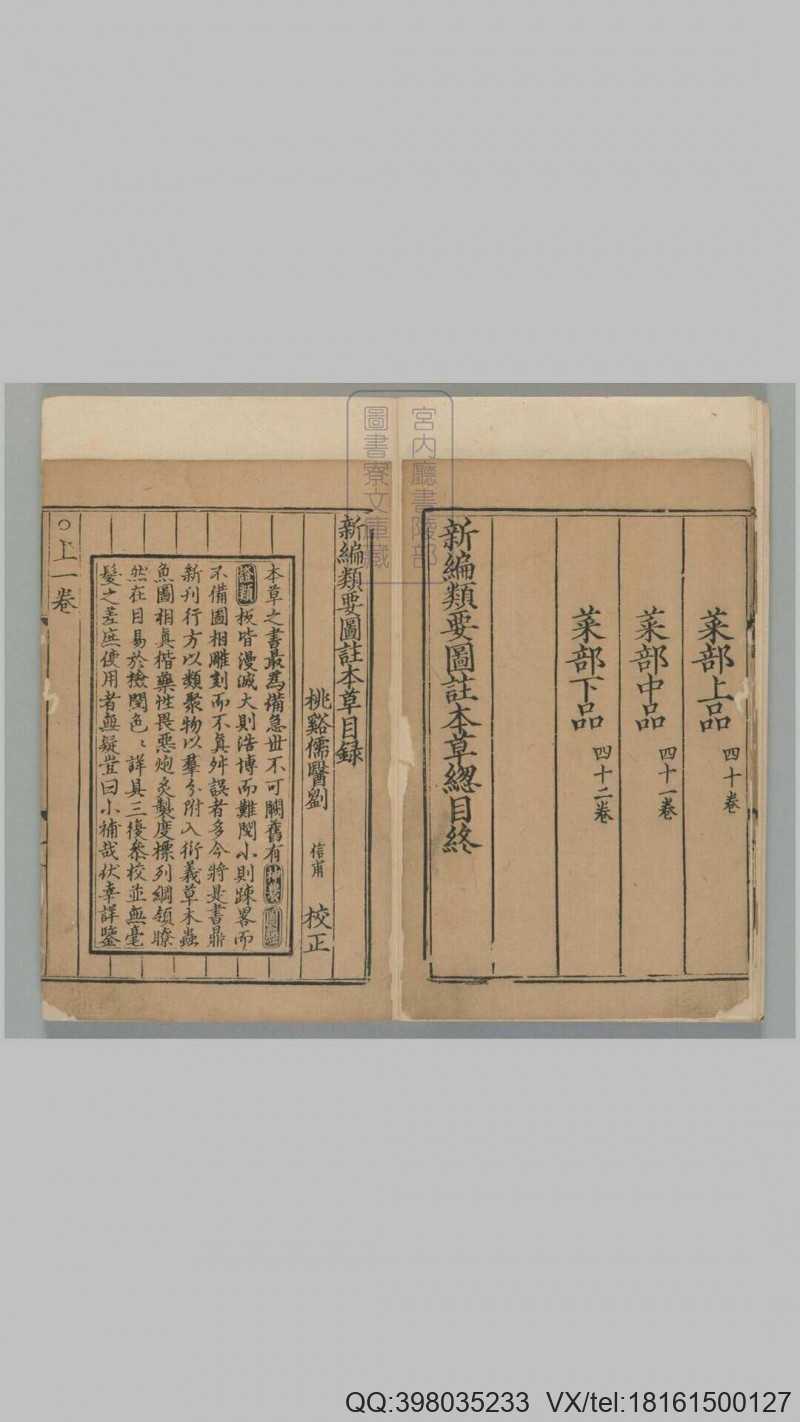 菜部上品 四十卷
菜部中品 四十一卷
菜部下品 四十二卷
新編類要圖註本草緫目終
宮內廳書陵部
圖書寮文庫藏
新編類要圖註本草目録
桃谿儒醫劉 信甫 校正
本草之書最爲備急世不可闕舊有
板皆漫滅大則浩博而難閱小則踈畧而
不備圖相雕刻而不真舛誤者多今將是書鼎
新刊行方以類聚物以羣分附入衍義草木蟲
魚圖相真楷藥性畏惡炮炙製度標列綱領瞭
然在目易於檢閱色〻詳具三復叅校並無毫
髮之差庶使用者無疑豈曰小補哉伏幸詳鑒
○上一卷
QQ:398035233 VX/tel:18161500127